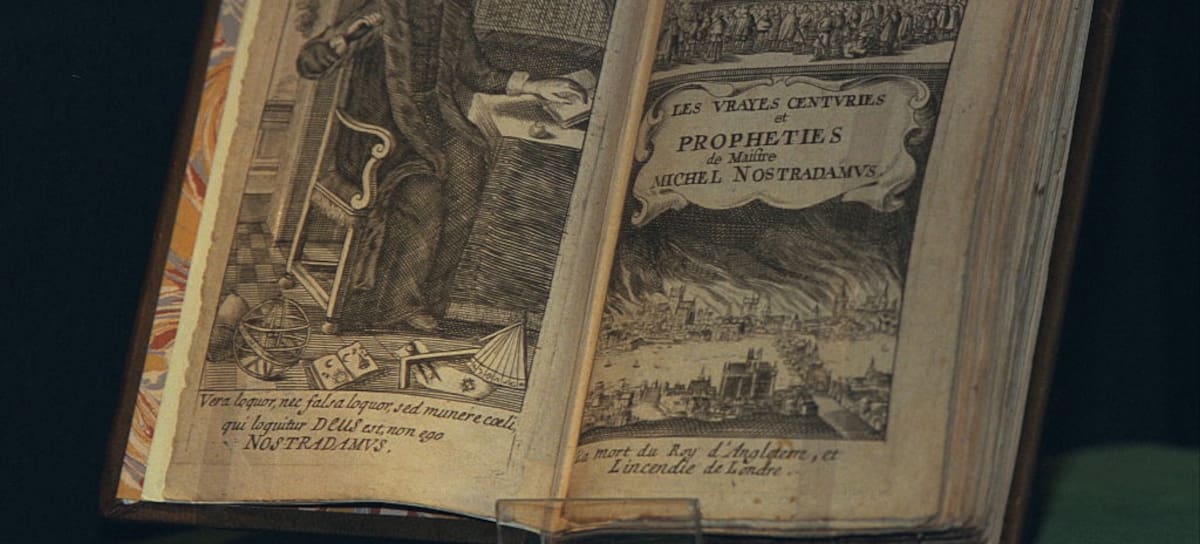 Vera loquor, nec falsa loquor, sed munere cœli,
qui loquitur DEUS est, non ego
NOSTRADAMVS.
LES VRAYES CENTVRIES
et
PROPHETIES
de Maiſtre
MICHEL NOSTRADAMVS.
La mort du Roy d'Angleterre, et
L'incendie de Londre.